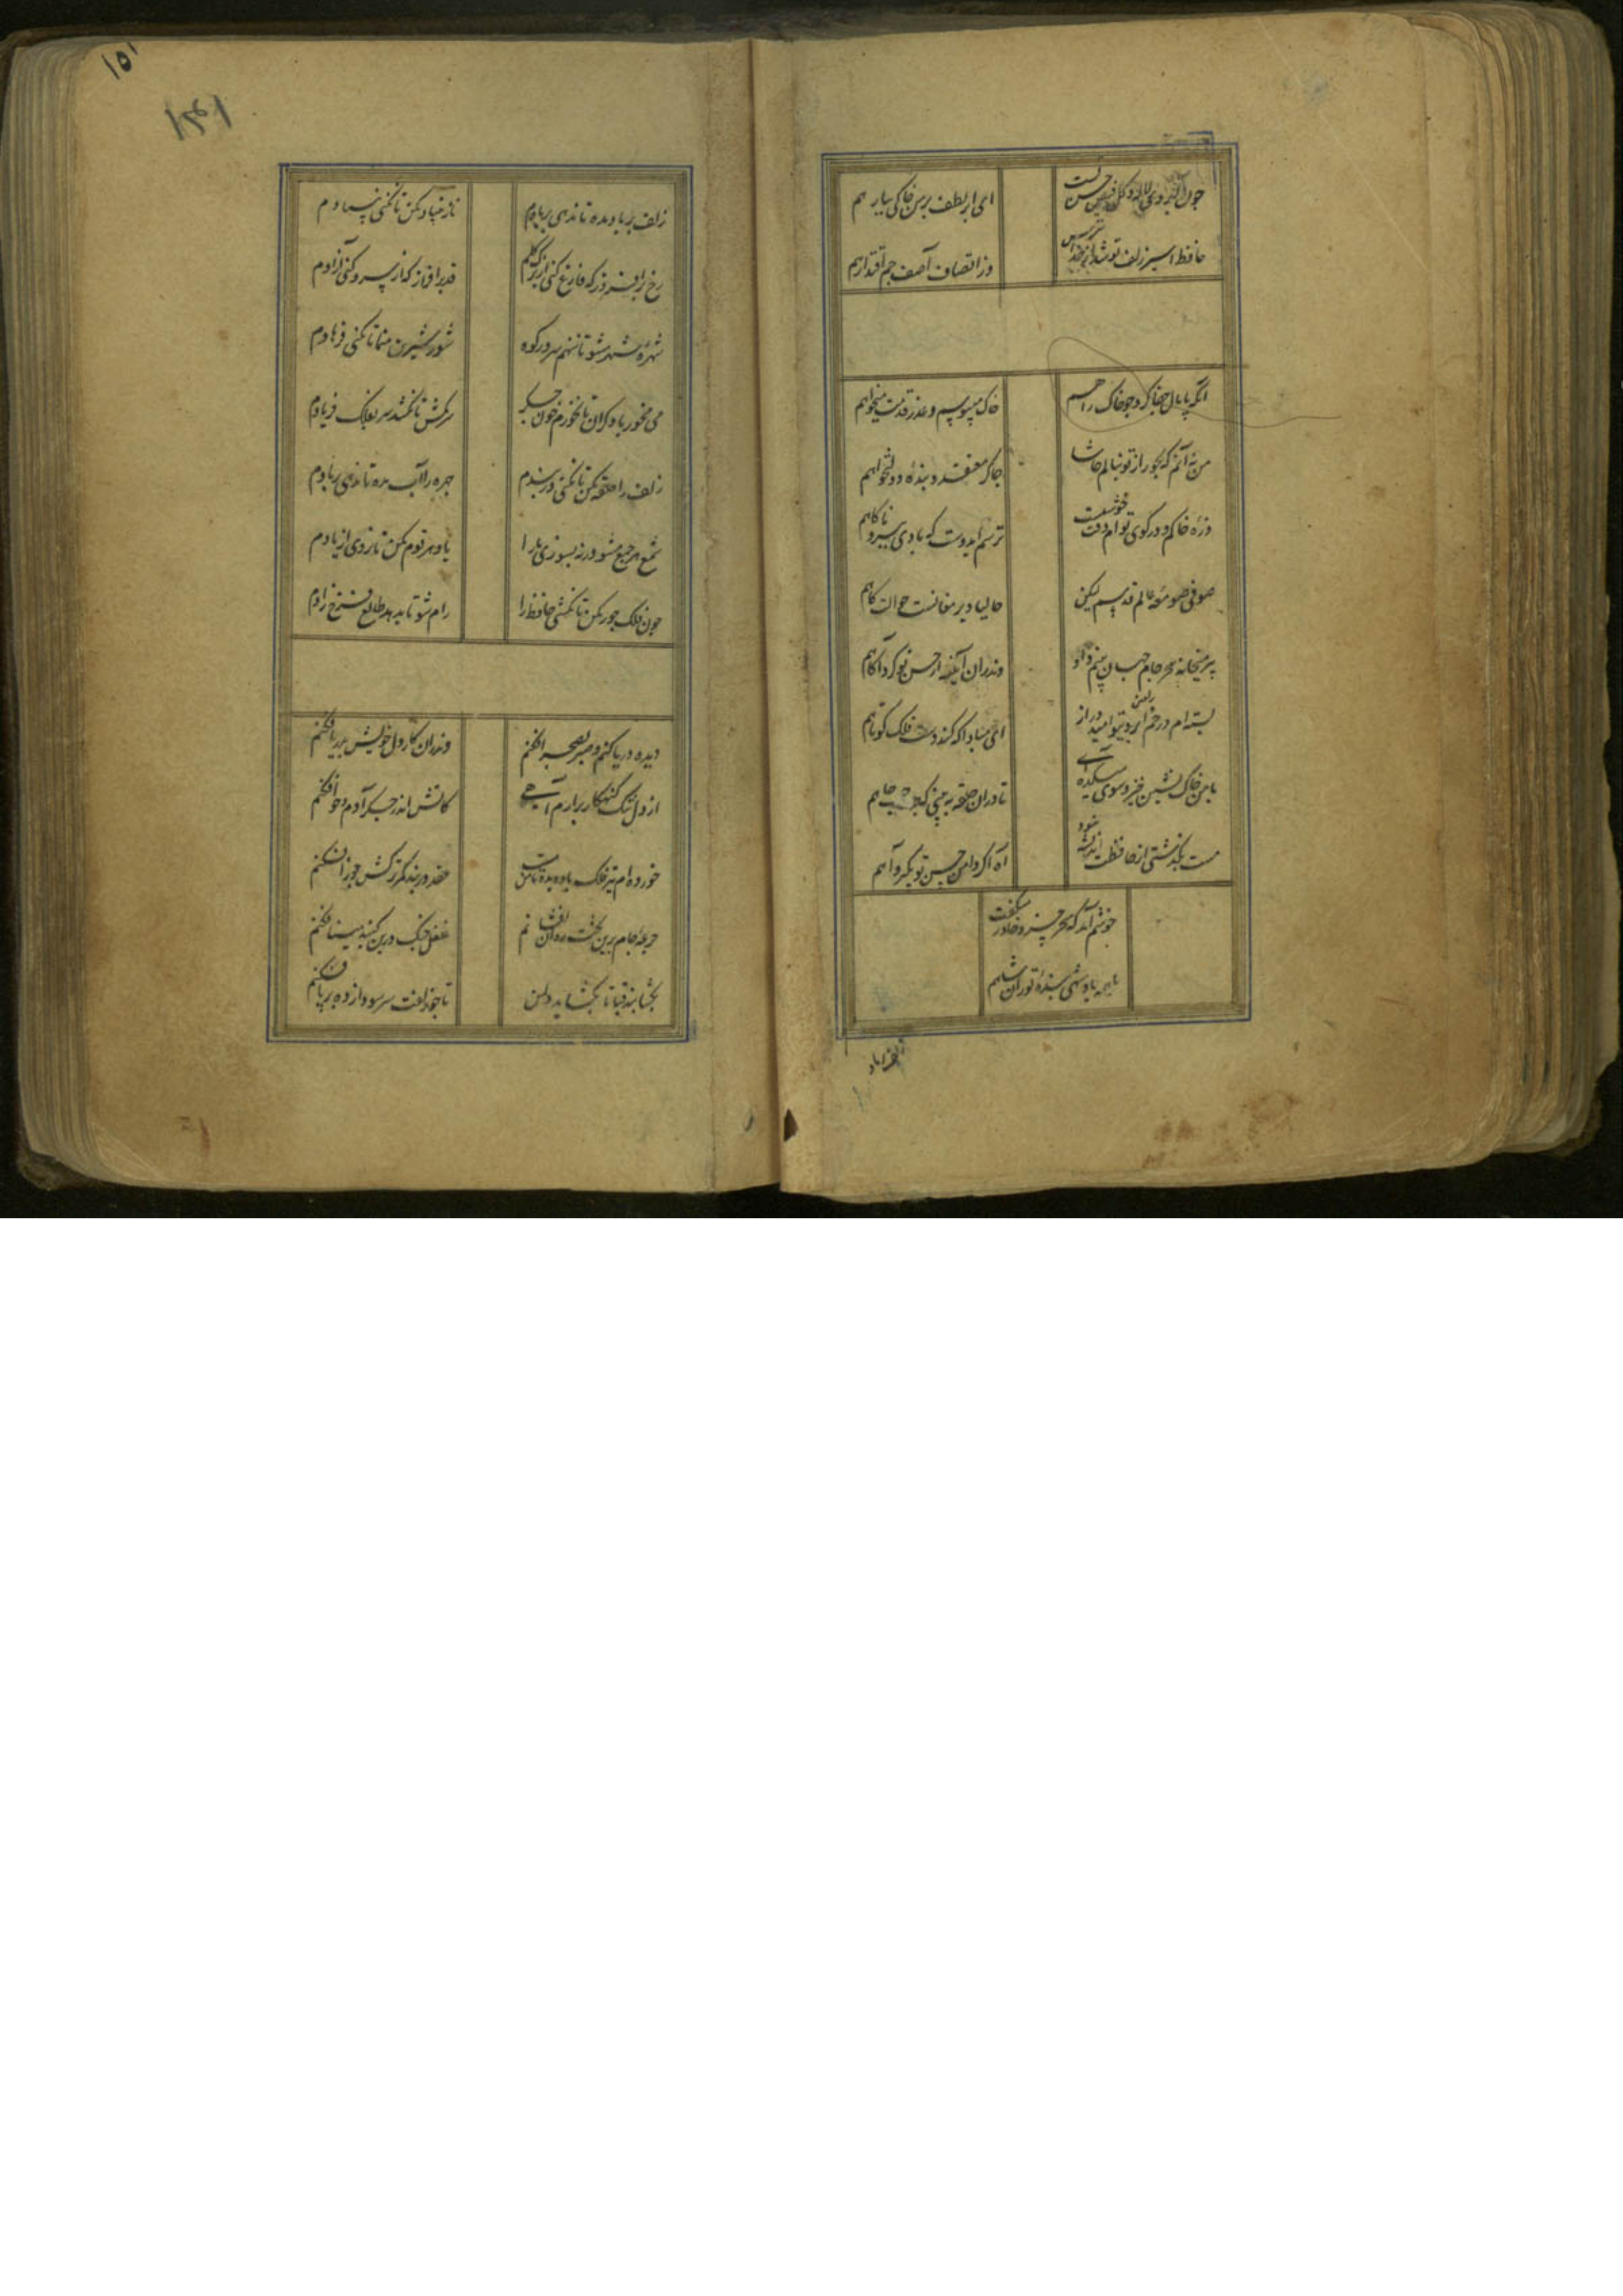 ۱۵۱
۱۴۱
چون آبروی لاله و گل فیض حسن تست
ای ابر لطف بر من خاکی ببار هم
حافظ اسیر زلف تو شد از خدا بترس
وز انتصاف آصف جم اقتدار هم
آنکه پامال جفا کرد چو خاک راهم
خاک میبوسم و عذر قدمت میخواهم
من نه آنم که بجور از تو بنالم حاشا
چاکر معتقد و بنده دولتخواهم
ذره خاکم و در کوی توام وقت خوشست
ترسم ایدوست که بادی ببرد ناگاهم
صوفی صومعه عالم قدسم لیکن
حالیا دیر مغانست حوالت گاهم
پیر میخانه سحر جام جهان بینم داد
وندران آینه از حسن تو کرد آگاهم
بسته ام در خم ابروی تو امید دراز
آن مبادا که کند دست فلک کوتاهم
با من خاک نشین خیز و سوی میکده آی
تا در آن حلقه ببینی که چه صاحب جاهم
مست بگذشتی و از حافظت اندیشه نبود
آه اگر دامن حسن تو بگیرد آهم
خوشم آمد که سحر خسرو خاور میگفت
با همه پادشهی بنده توران شاهم
زلف بر باد
زلف بر باد مده تا ندهی بر بادم
ناز بنیاد مکن تا نکنی بنیادم
رخ برافروز که فارغ کنی از برگ گلم
قد برافراز که از سرو کنی آزادم
شهره شهر مشو تا ننهم سر در کوه
شور شیرین منما تا نکنی فرهادم
می مخور با دگران تا نخورم خون جگر
سرمکش تا نکشد سر بفلک فریادم
زلف را حلقه مکن تا نکنی در بندم
چهره را آب مده تا ندهی بر بادم
شمع هر جمع مشو ورنه بسوزی ما را
یاد هر قوم مکن تا نروی از یادم
چون فلک جور مکن تا نکشی حافظ را
رام شو تا بدهد طالع فرخ زادم
دیده دریا کنم و صبر بصحرا فکنم
وندران کار دل خویش بدریا فکنم
از دل تنگ گنهکار برارم آهی
کاتش اندر جگر آدم و حوا فکنم
خورده ام تیر فلک باده بده تا سرمست
عقده در بند کمر ترکش جوزا فکنم
جرعه جام برین تخت روان افشانم
غلغل چنگ درین گنبد مینا فکنم
بگشا بند قبا تا بگشاید دل من
تا چو زلفت سر سودازده در پا فکنم